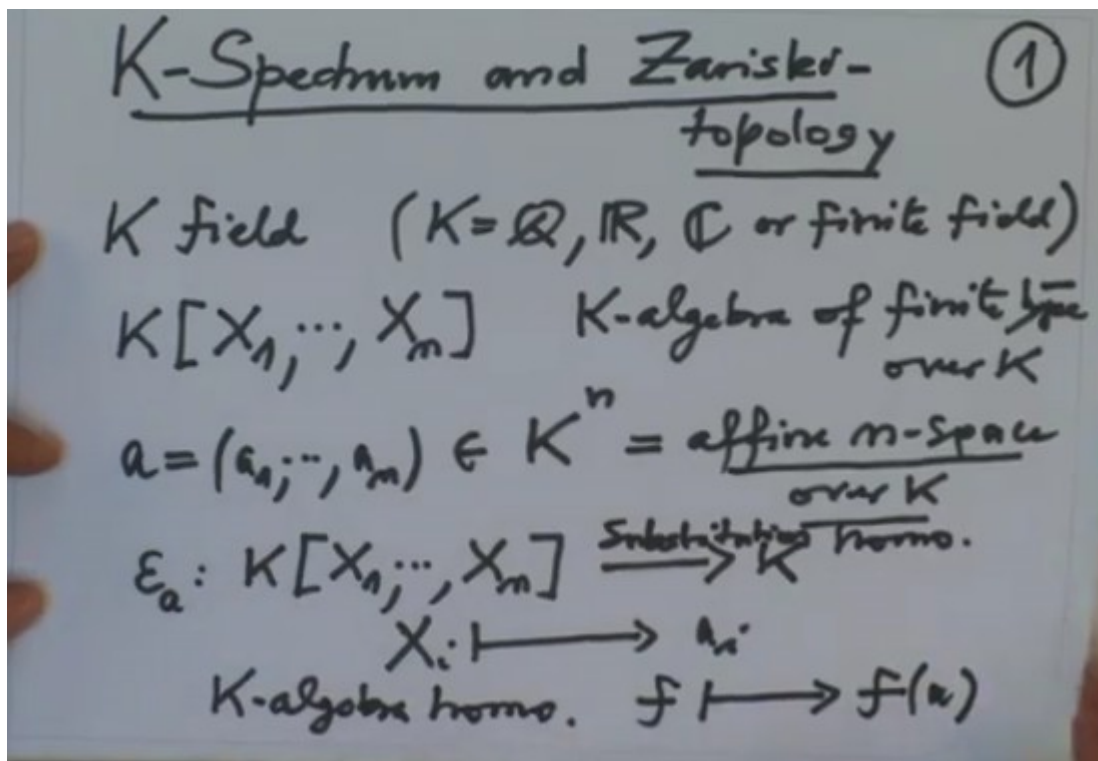 K-Spectrum and Zariski-  ①
topology
K field (K = ℚ, ℝ, ℂ or finite field)
K[X₁,⋯,Xₙ] K-algebra of finite type
over K
a = (a₁,⋯,aₙ) ∈ Kⁿ = affine n-space
over K
εₐ: K[X₁,⋯,Xₙ] ⟶ K Substitution homo.
Xᵢ ⟼ aᵢ
K-algebra homo. f ⟼ f(a)